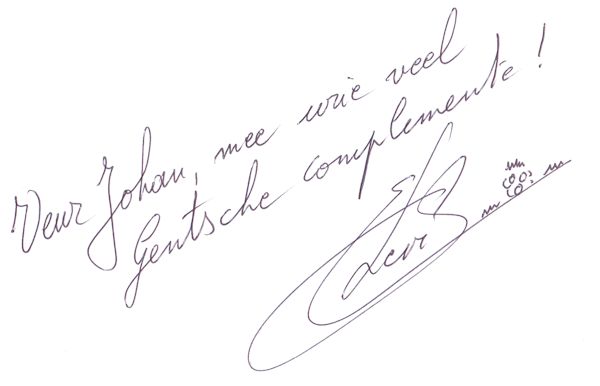 Veur Johan, mee wrie veel
Gentsche complemente!